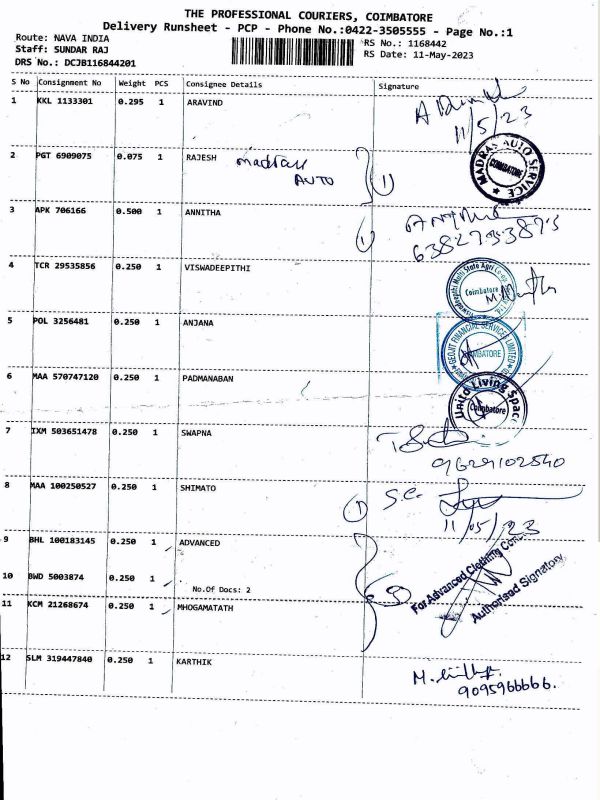 THE PROFESSIONAL COURIERS, COIMBATORE
Delivery Runsheet - PCP - Phone No.:0422-3505555 - Page No.:1
Route: NAVA INDIA
Staff: SUNDAR RAJ
DRS No.: DCJB116844201
RS No.: 1168442
RS Date: 11-May-2023
S No Consignment No Weight PCS Consignee Details Signature
1 KKL 1133301 0.295 1 ARAVIND
11/5/23
2 PGT 6909075 0.075 1 RAJESH Madras AUTO 1
MADRAS AUTO SERVICE COIMBATORE
3 APK 706166 0.500 1 ANNITHA 1
4 TCR 29535856 0.250 1 VISWADEEPITHI
Viswadeepthi Multi State Agri Co-op Coimbatore
5 POL 3256481 0.250 1 ANJANA
GEOJIT FINANCIAL SERVICES LIMITED COIMBATORE
6 MAA 570747120 0.250 1 PADMANABAN
Unito Living Space Coimbatore
7 IXM 503651478 0.250 1 SWAPNA
9629102540
8 MAA 100250527 0.250 1 SHIMATO 1
S.C.
11/05/23
9 BHL 100183145 0.250 1 ADVANCED
For Advanced Clothing
Authorised Signatory
10 BWD 5003874 0.250 1
No.Of Docs: 2
11 KCM 21268674 0.250 1 MHOGAMATATH
12 SLM 319447840 0.250 1 KARTHIK
9095966666.